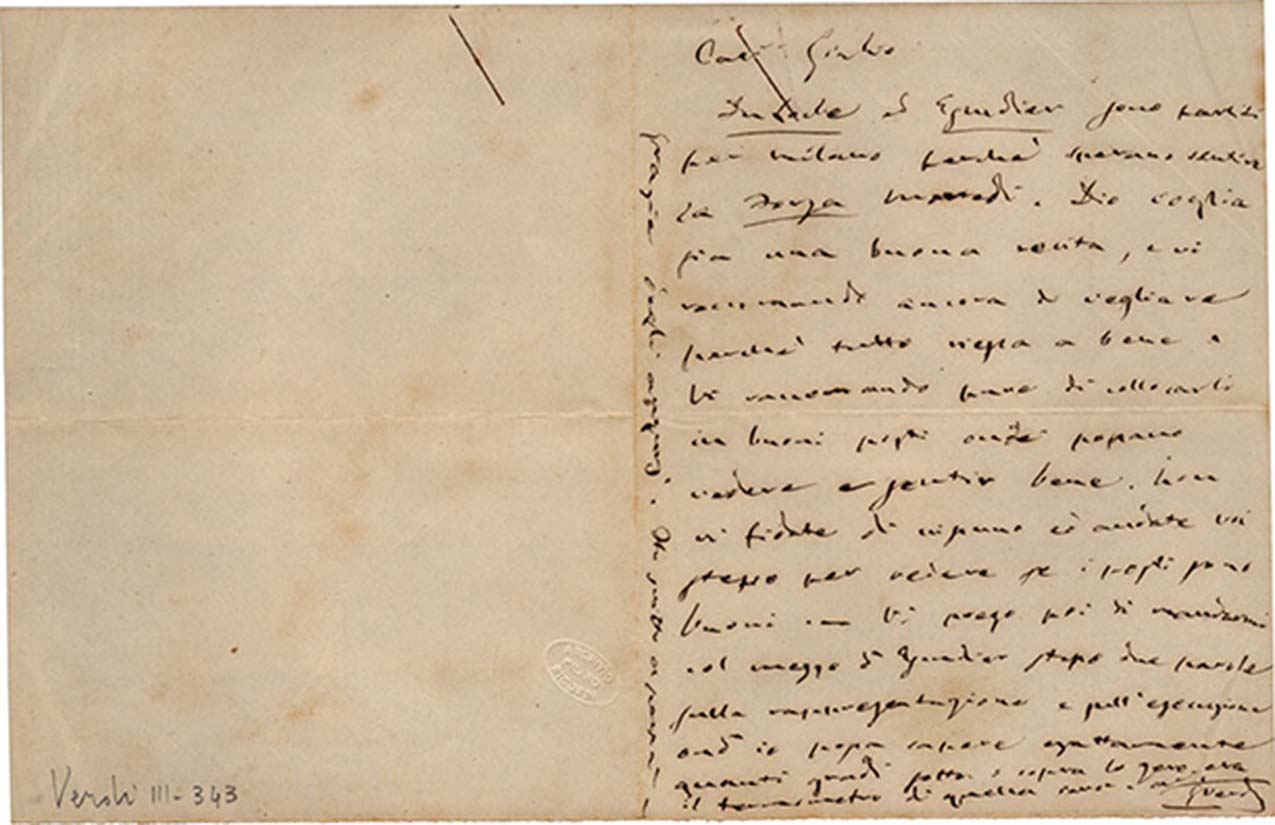 Caro Giulio
Du Locle ed Escudier sono partiti
per Milano perchè sperano sentire
la Forza martedì. Dio voglia
sia una buona recita, e vi
raccomando ancora di vegliare
perchè tutto riesca a bene e
Vi raccomando pure di collocarli
in buoni posti ond'ei possano
vedere e sentir bene. Non
vi fidate di nissuno ed andate voi
stesso per vedere se i posti sono
buoni Vi prego poi di mandarmi
col mezzo d'Escudier stesso due parole
sulla rappresentazione e sull'esecuzione
ond'io possa sapere esattamente
quanti gradi sotto o sopra lo zero era
il termometro di quella sera
G Verdi
grazie degli
ARCHIVIO
RICORDI
Verdi III-343